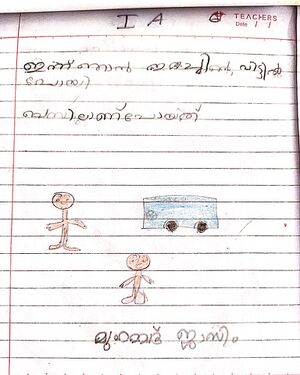 I A
TEACHERS
Date / /
ഇന്ന് ഞാൻ വീട്ടിൽ
പോയി
ബസിലാണ് പോയത്
മുഹമ്മദ്